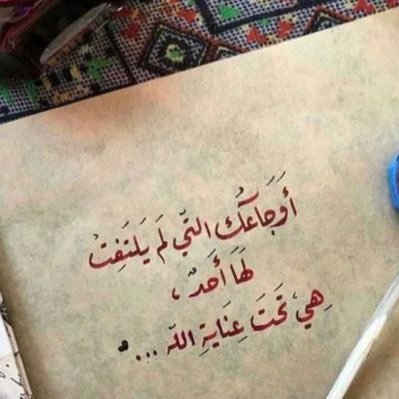 أَوَجَاعَكُ التّي لَمَ يَلتَفِتْ
لَهَا أَحَدٌ ،
هِيَ تَحَتَ عِنَايةِ اللّه ...